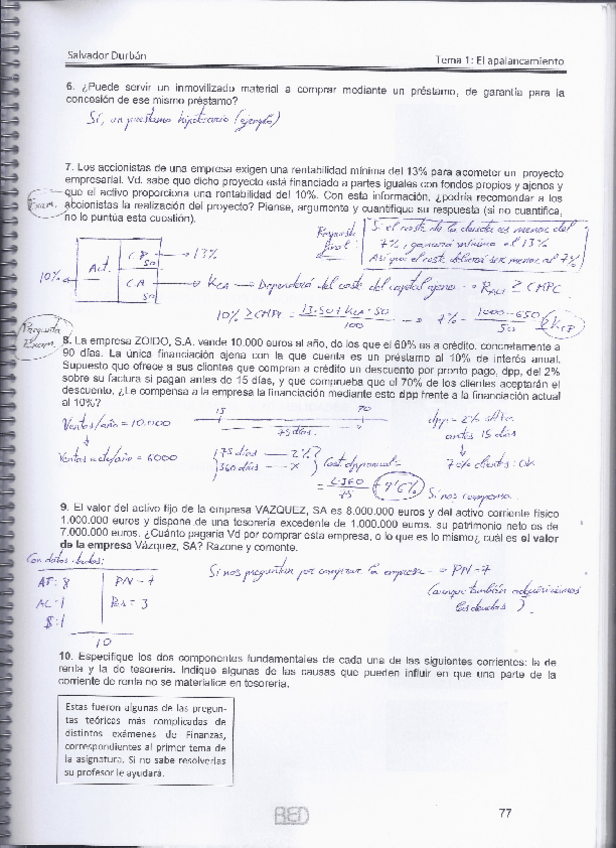 Salvador Durbán
Tema 1: El apalancamiento
6. ¿Puede servir un inmovilizado material a comprar mediante un préstamo, de garantía para la
concesión de ese mismo préstamo?
Sí, un préstamo hipotecario (ejemplo)
7. Los accionistas de una empresa exigen una rentabilidad mínima del 13% para acometer un proyecto
empresarial. Vd. sabe que dicho proyecto está financiado a partes iguales con fondos propios y ajenos y
que el activo proporciona una rentabilidad del 10%. Con esta información, ¿podría recomendar a los
accionistas la realización del proyecto? Piense, argumente y cuantifique su respuesta (si no cuantifica,
no lo puntúa esta cuestión).
Exam.
Respuesta final:
Si el coste de la deuda es menor del
7%, ganará mínimo el 13%
Así que el coste deberá ser menor al 7%
10% Act. CP 50 → 13%
CA 50 → KCA → Dependerá del coste del capital ajeno → RACT ≥ CMPC
10% ≥ CMPC 13·50+KCA·50 / 100 → 7% = 1000-650 / 50 ≥
Pregunta
Exam.
8. La empresa ZOIDO, S.A. vende 10.000 euros al año, de los que el 60% es a crédito, concretamente a
90 días. La única financiación ajena con la que cuenta es un préstamo al 10% de interés anual.
Supuesto que ofrece a sus clientes que compran a crédito un descuento por pronto pago, dpp, del 2%
sobre su factura si pagan antes de 15 días, y que comprueba que el 70% de los clientes aceptarán el
descuento, ¿Le compensa a la empresa la financiación mediante este dpp frente a la financiación actual
al 10%?
Ventas/año = 10.000
Ventas a cdto/año = 6000
15
75 días.
75 días — 2%
360 días — x
Cost dpp anual =
= 2·360 / 75 = 9'6%
Sí nos compensa
dpp = 2% dto.
antes 15 días
70% clientes: OK
9. El valor del activo fijo de la empresa VAZQUEZ, SA es 8.000.000 euros y del activo corriente físico
1.000.000 euros y dispone de una tesorería excedente de 1.000.000 euros. su patrimonio neto es de
7.000.000 euros. ¿Cuánto pagaría Vd por comprar esta empresa, o lo que es lo mismo¿ cuál es el valor
de la empresa Vázquez, SA? Razone y comente.
Con datos brutos:
AF: 8 PN = 7
AC: 1 = 3
$: 1
10
Si nos preguntan por comprar la empresa → PN = 7
(aunque también adquiriríamos
las deudas)
10. Especifique los dos componentes fundamentales de cada una de las siguientes corrientes: la de
renta y la de tesorería. Indique algunas de las causas que pueden influir en que una parte de la
corriente de renta no se materialice en tesorería.
Estas fueron algunas de las pregun-
tas teóricas más complicadas de
distintos exámenes de Finanzas,
correspondientes al primer tema de
la asignatura. Si no sabe resolverlas
su profesor le ayudará.
77